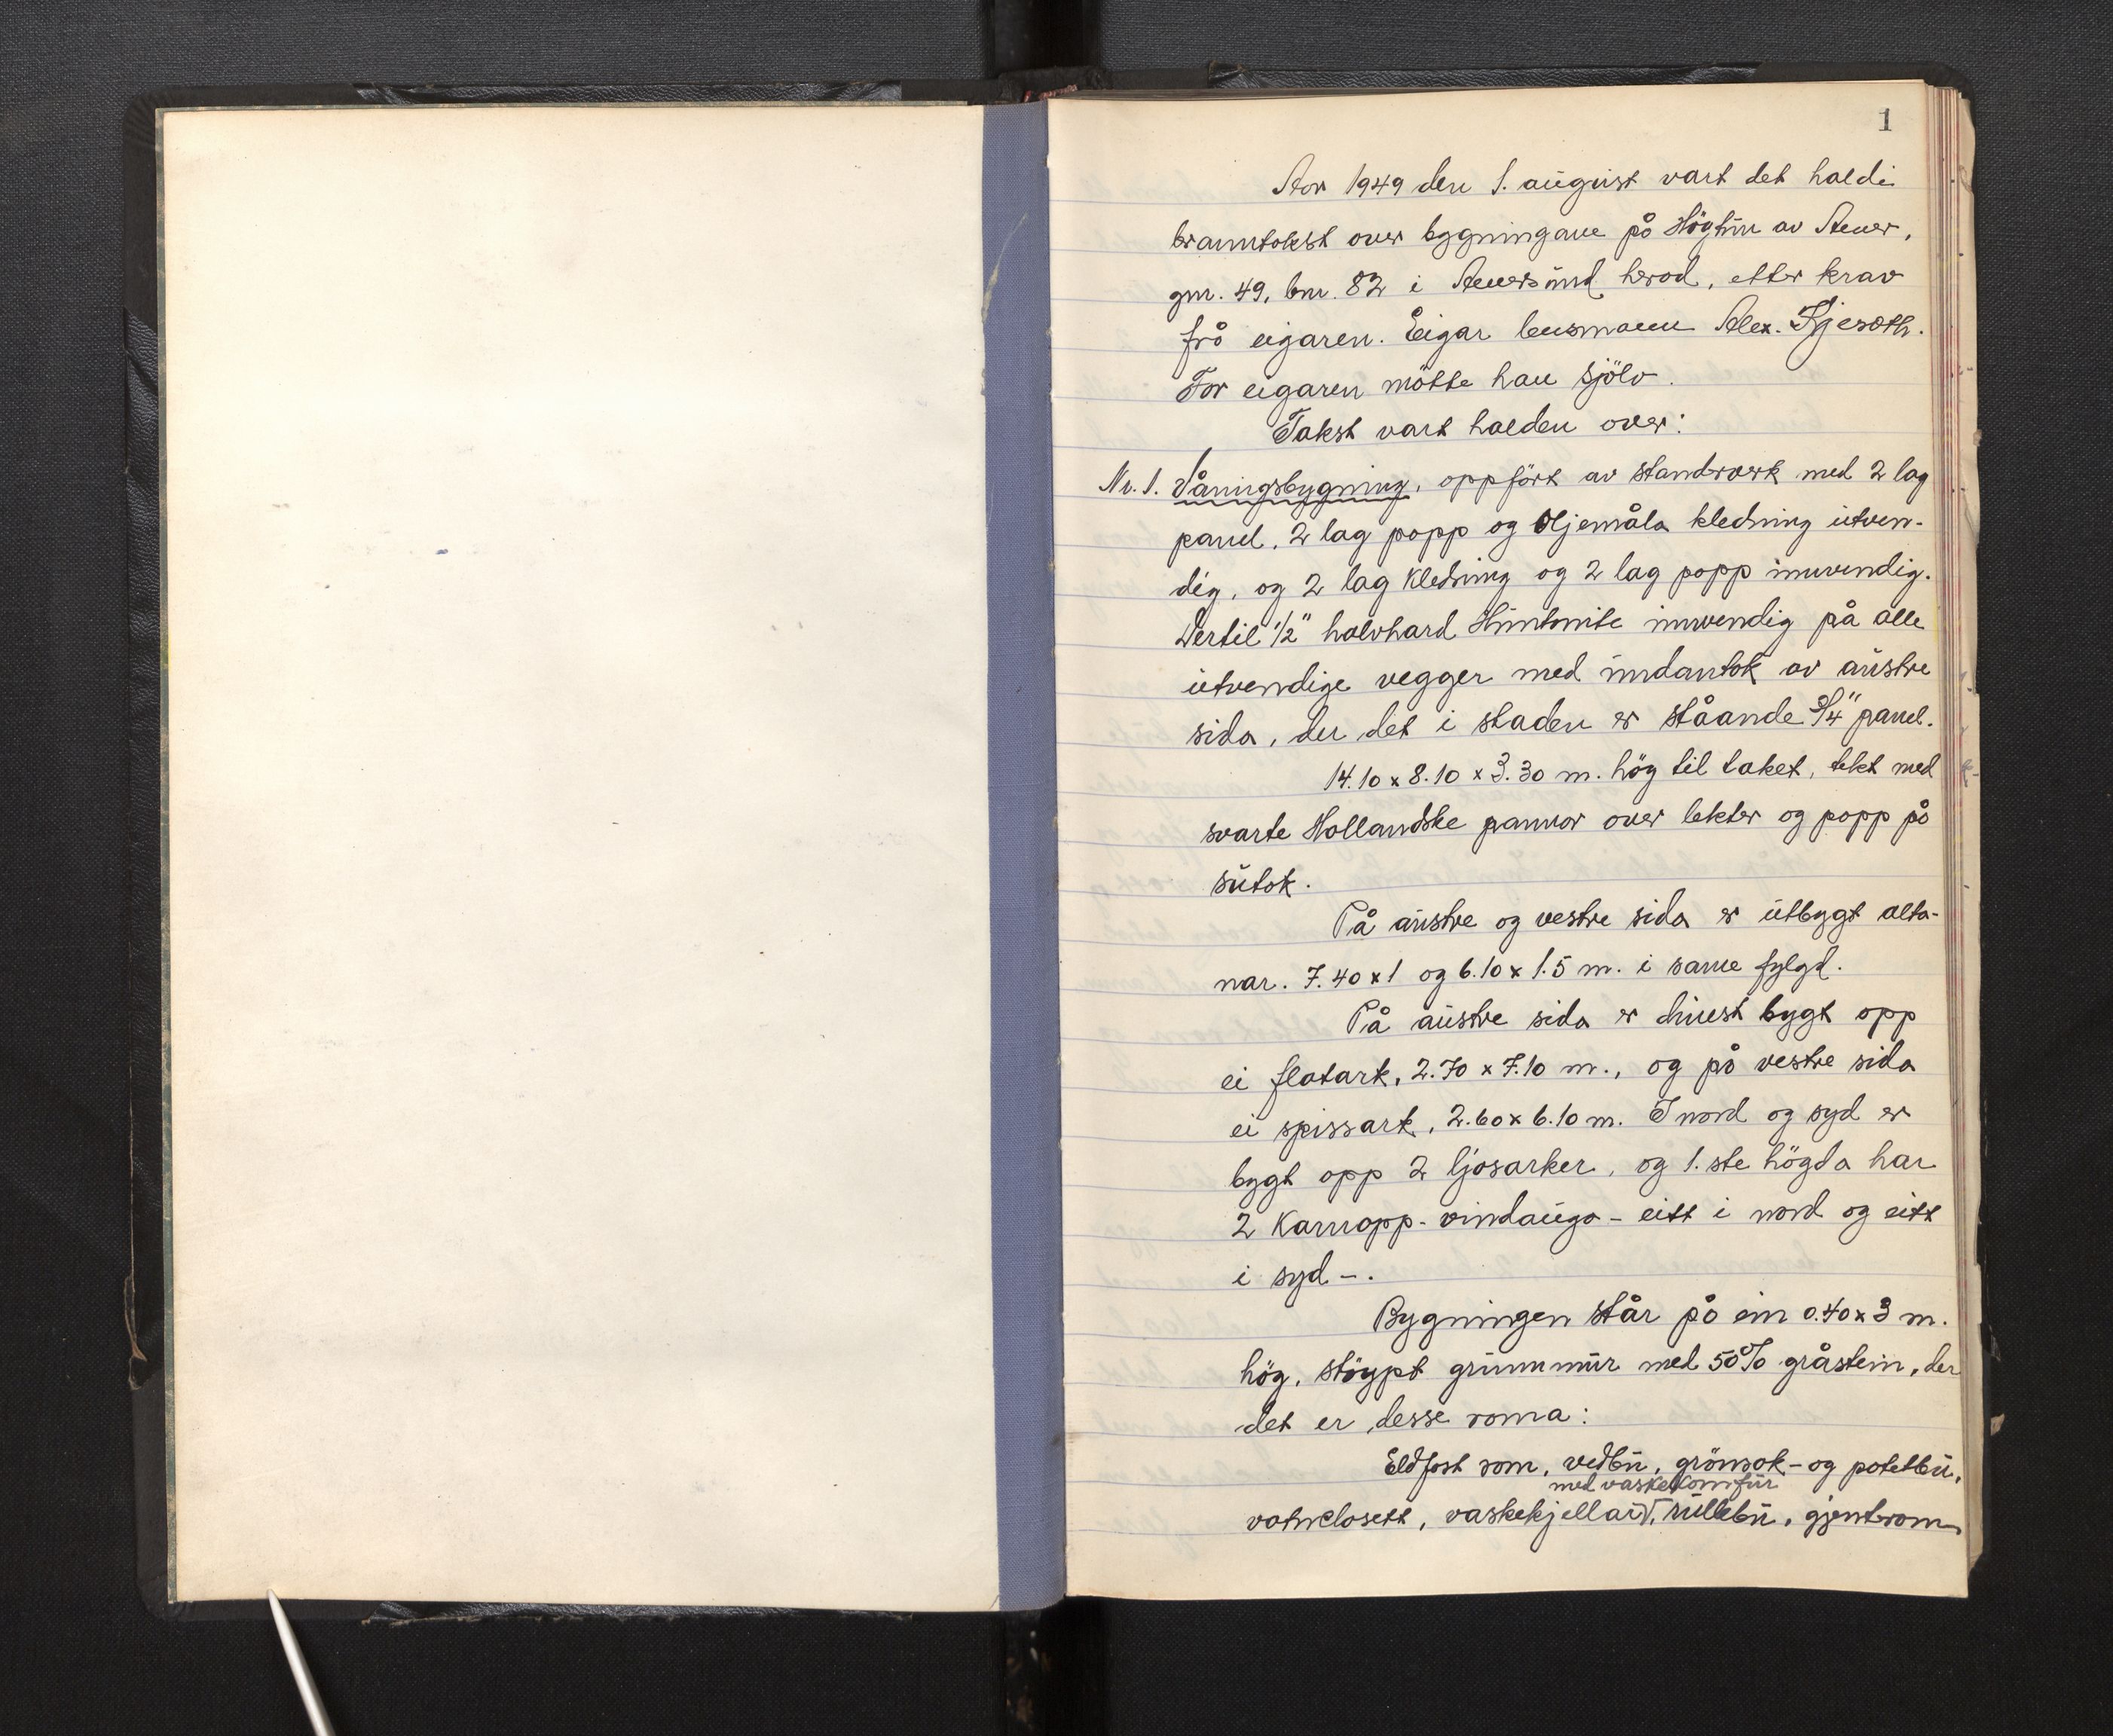 1
Aar 1949 den 1. august vart det haldi
branntakst over bygningane på Högtun av Aener,
gnr. 49, bnr. 82 i herad, etter krav
frå eigaren. Eigar lensmann Alex.
For eigaren møtte han sjölv.
Takst vart halden over:
Nr. 1. Våningsbygning, oppfört av standverk med 2 lag
panel, 2 lag papp og oljemåla kledning utven-
dig, og 2 lag kledning og 2 lag papp innvendig.
Dertil 1/2" halvhard Huntonite innvendig på alle
utvendige vegger med undantak av austre
sida, der det i staden er ståande 3/4" panel.
14.10 x 8.10 x 3.30 m. hög til taket, tekt med
svarte Hollandske pannor over lekter og papp på
sutak.
På austre og vestre sida er utbygt alta-
nar. 7.40 x 1 og 6.10 x 1.5 m. i same fylgd.
På austre sida er dinest bygt opp
ei flatark, 2.70 x 7.10 m., og på vestre sida
ei spissark, 2.60 x 6.10 m. I nord og syd er
bygt opp 2 ljosarker, og 1. ste högda har
2 karnapp-vindaugo - eitt i nord og eitt
i syd -.
Bygningen står på ein 0.40 x 3 m.
hög, stöypt grunnmur med 50% gråstein, der
det er desse roma:
Eldfast rom, vedbu, grönsak- og potetbu,
med vaskekomfür
vatnclosett, vaskekjellar, rullebu, gjenterom